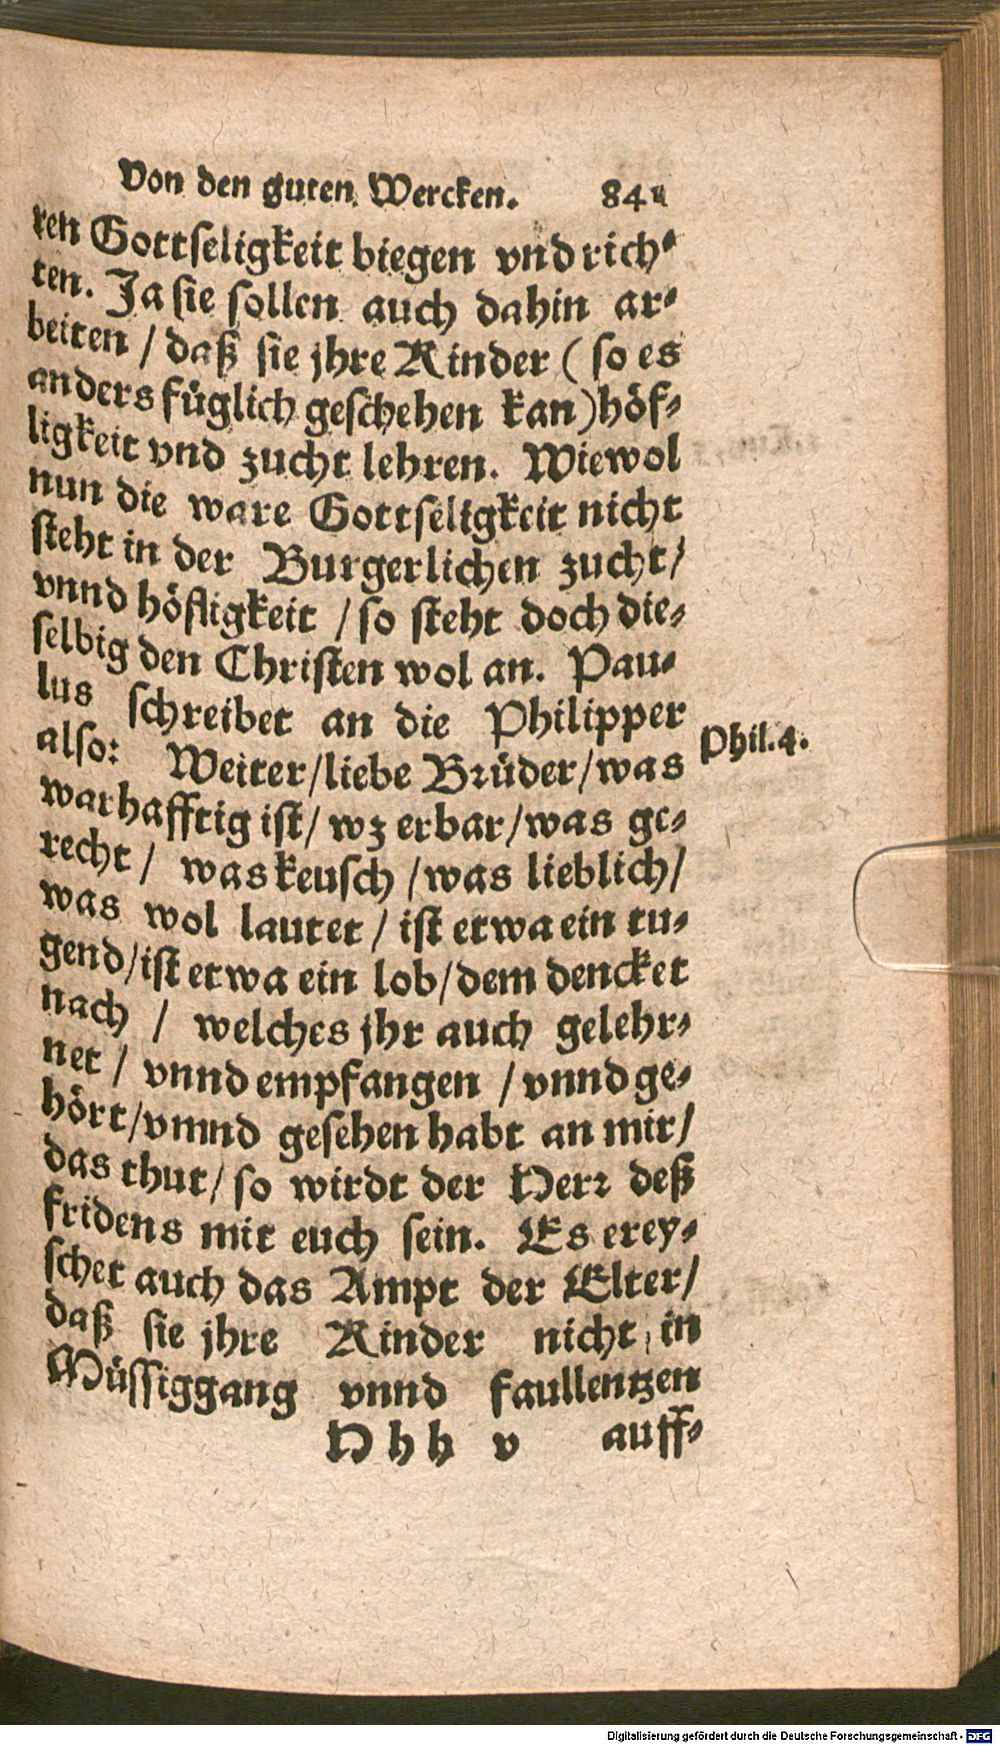 Von den guten Wercken. 841
ren Gottseligkeit biegen vnd rich⸗
ten. Ja sie sollen auch dahin ar⸗
beiten / daß sie jhre Kinder (so es
anders füglich geschehen kan) höf⸗
ligkeit vnd zucht lehren. Wiewol
nun die ware Gottseligkeit nicht
steht in der Burgerlichen zucht /
vnnd höfligkeit / so steht doch die⸗
selbig den Christen wol an. Pau⸗
lus schreibet an die Philipper
also: Weiter / liebe Brüder / was
warhafftig ist / wz erbar / was ge⸗
recht / was keusch / was lieblich /
was wol lautet / ist etwa ein tu⸗
gend / ist etwa ein lob / dem dencket
nach / welches jhr auch gelehr⸗
net / vnnd empfangen / vnnd ge⸗
hört / vnnd gesehen habt an mir /
das thut / so wirdt der Herr deß
fridens mit euch sein. Es erey⸗
schet auch das Ampt der Elter /
daß sie jhre Kinder nicht in
Müssiggang vnnd faullentzen
Hhh v auff⸗
Phil. 4.
Digitalisierung gefördert durch die Deutsche Forschungsgemeinschaft - DFG